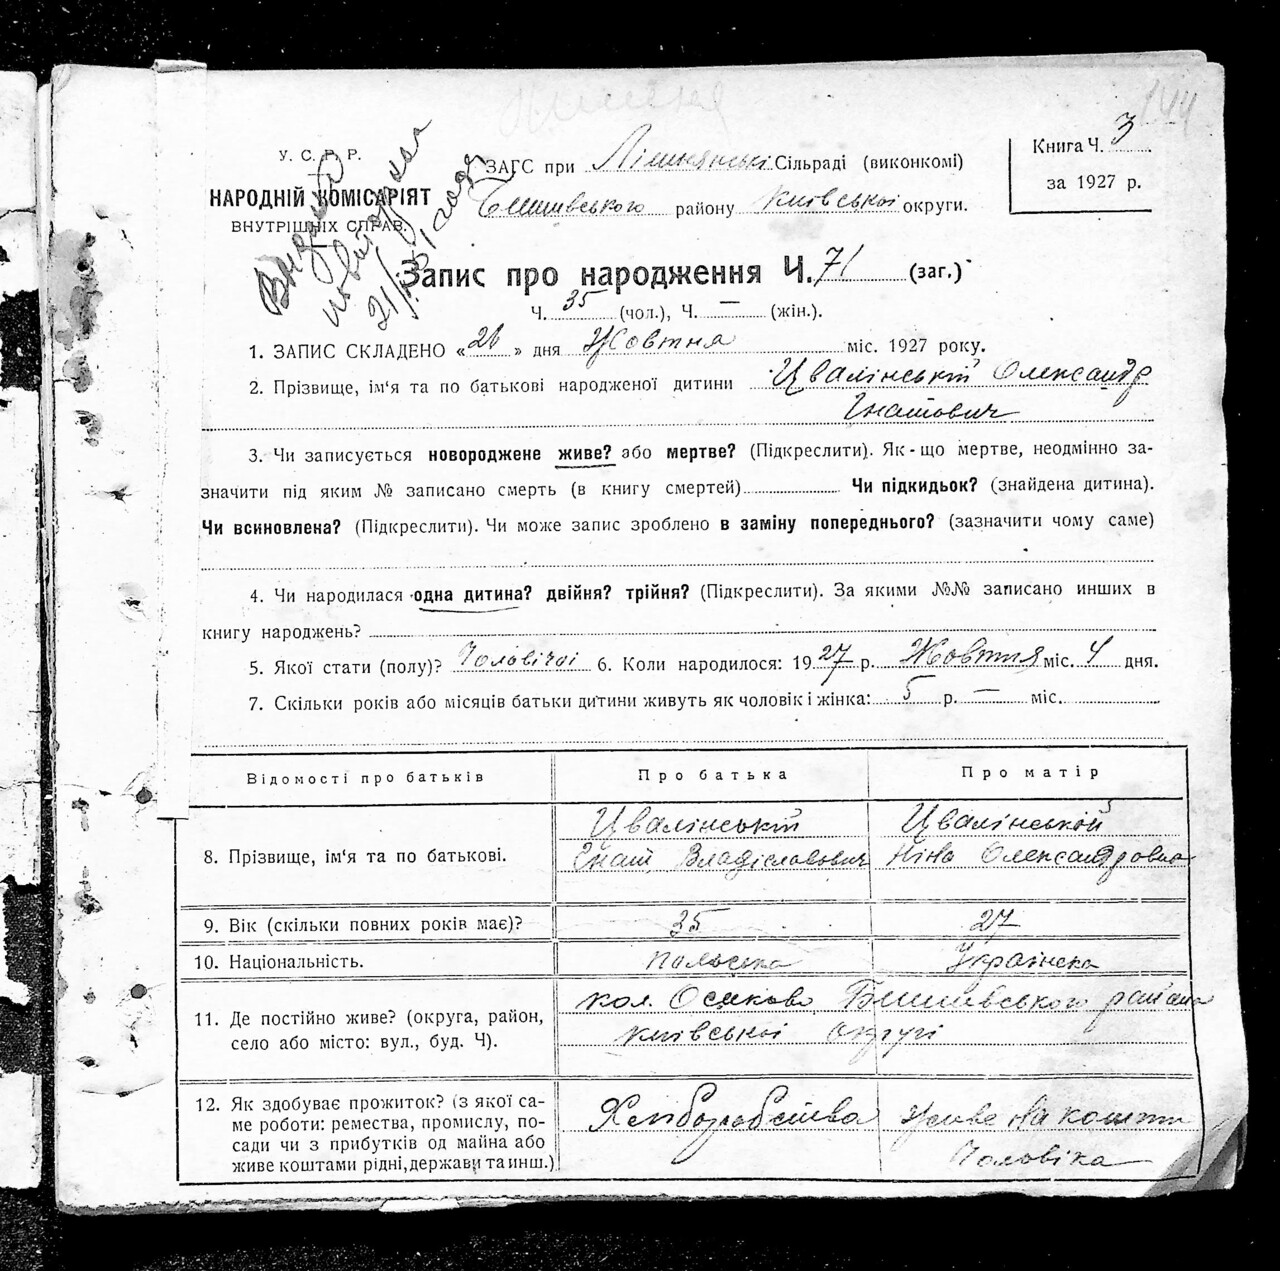 144
У. С. Р. Р.
НАРОДНІЙ КОМІСАРІЯТ
ВНУТРІШНІХ СПРАВ.
ЗАГС при Лішнянські Сільраді (виконкомі)
Бишівського району Київської округи.
Книга Ч. 3
за 1927 р.
Запис про народження Ч. 71 (заг.)
Ч. 35 (чол.), Ч. — (жін.).
1. ЗАПИС СКЛАДЕНО «26» дня Жовтня міс. 1927 року.
2. Прізвище, ім'я та по батькові народженої дитини Цвалінський Олександр
Гнатович
3. Чи записується новороджене живе? або мертве? (Підкреслити). Як-що мертве, неодмінно за-
значити під яким № записано смерть (в книгу смертей) Чи підкидьок? (знайдена дитина).
Чи всиновлена? (Підкреслити). Чи може запис зроблено в заміну попереднього? (зазначити чому саме)
4. Чи народилася одна дитина? двійня? трійня? (Підкреслити). За якими №№ записано инших в
книгу народжень?
5. Якої стати (полу)? Чоловічої 6. Коли народилося: 1927 р. Жовтня міс. 4 дня.
7. Скільки років або місяців батьки дитини живуть як чоловік і жінка: 5 р. — міс.
Відомості про батьків Про батька Про матір
8. Прізвище, ім'я та по батькові.
Цвалінський Цвалінськой
Гнат Владіславович Ніна Олександровна
9. Вік (скільки повних років має)? 35 27
10. Національність. польська Українска
11. Де постійно живе? (округа, район,
село або місто: вул., буд. Ч).
кол. Осиково Бишивського района
київської округі
12. Як здобуває прожиток? (з якої са-
ме роботи: ремества, промислу, по-
сади чи з прибутків од майна або
живе коштами рідні, держави та инш.)
Хлиборобства живе на кошти
Чоловіка